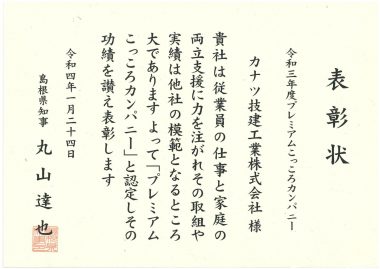 表彰状
令和三年度プレミアムこっころカンパニー
カナツ技建工業株式会社 様
貴社は従業員の仕事と家庭の
両立支援に力を注がれその取組や
実績は他社の模範となるところ
大であります よって「プレミアム
こっころカンパニー」と認定しその
功績を讃え表彰します
令和四年一月二十四日
島根県知事 丸山達也